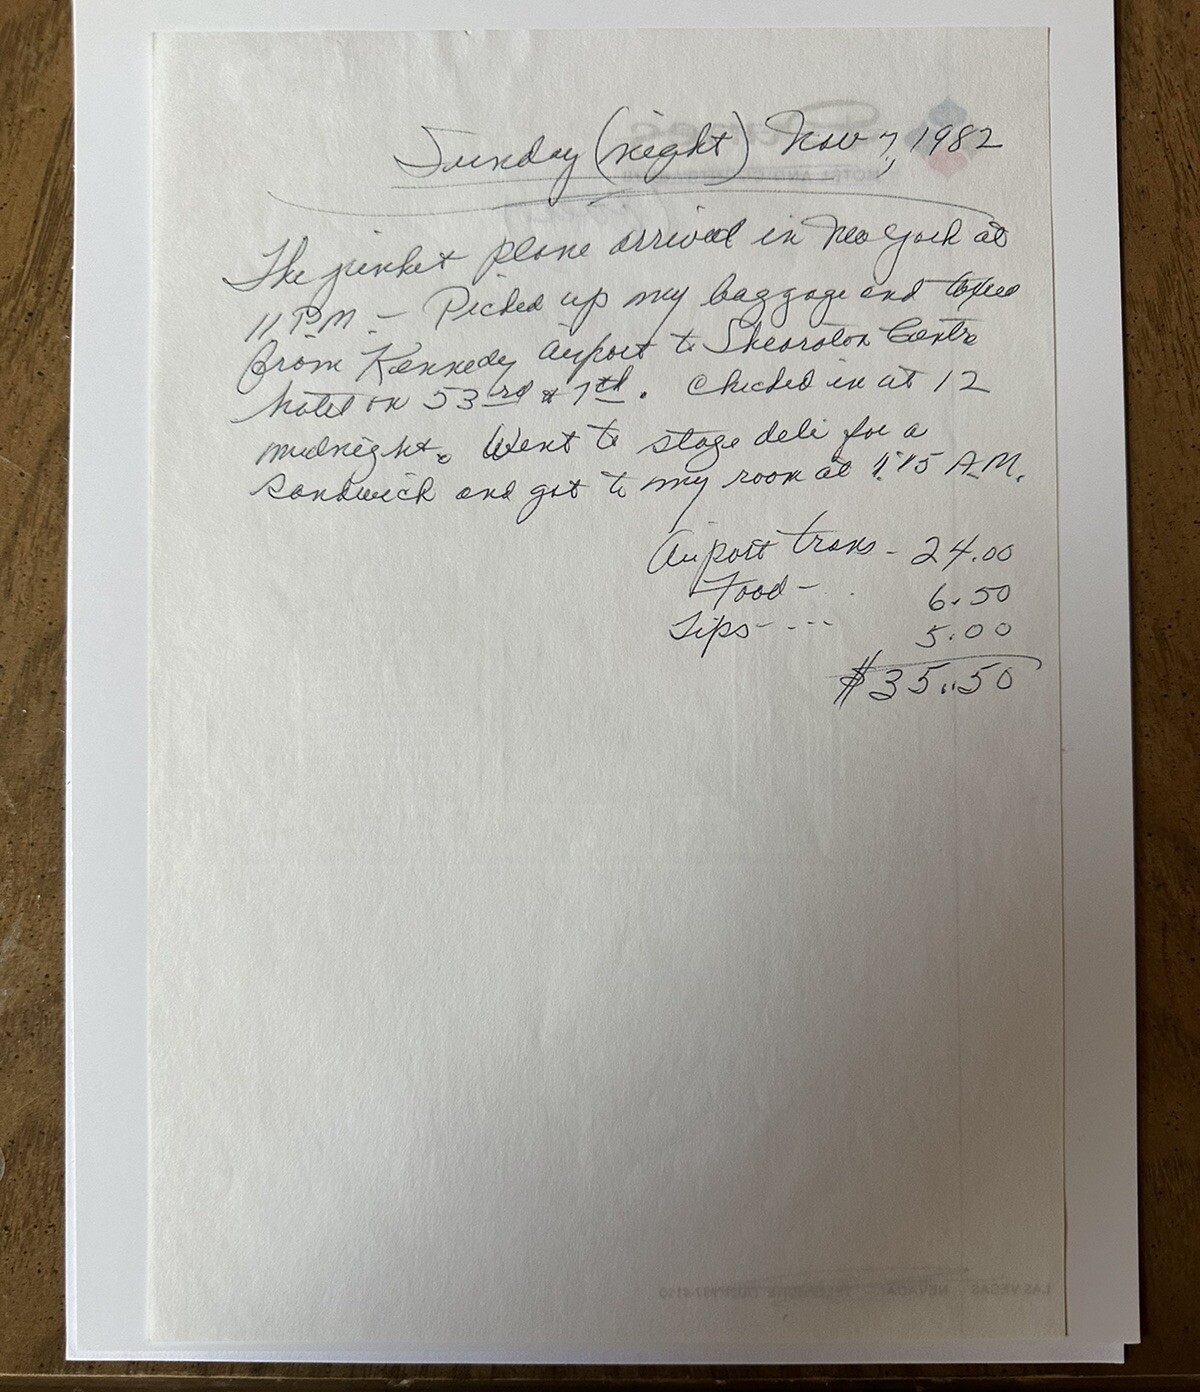 Sunday (night) Nov 7, 1982
The junket plane arrived in New York at
11 P.M. - Picked up my baggage and taxied
from Kennedy airport to Shearaton Centre
hotel on 53rd & 7th. Checked in at 12
midnight. Went to stage deli for a
sandwich and got to my room at 1:15 A.M.
Airport trans - 24.00
Food - 6.50
Tips - --- 5.00
$35.50
HOTEL AND
LAS VEGAS NEVADA